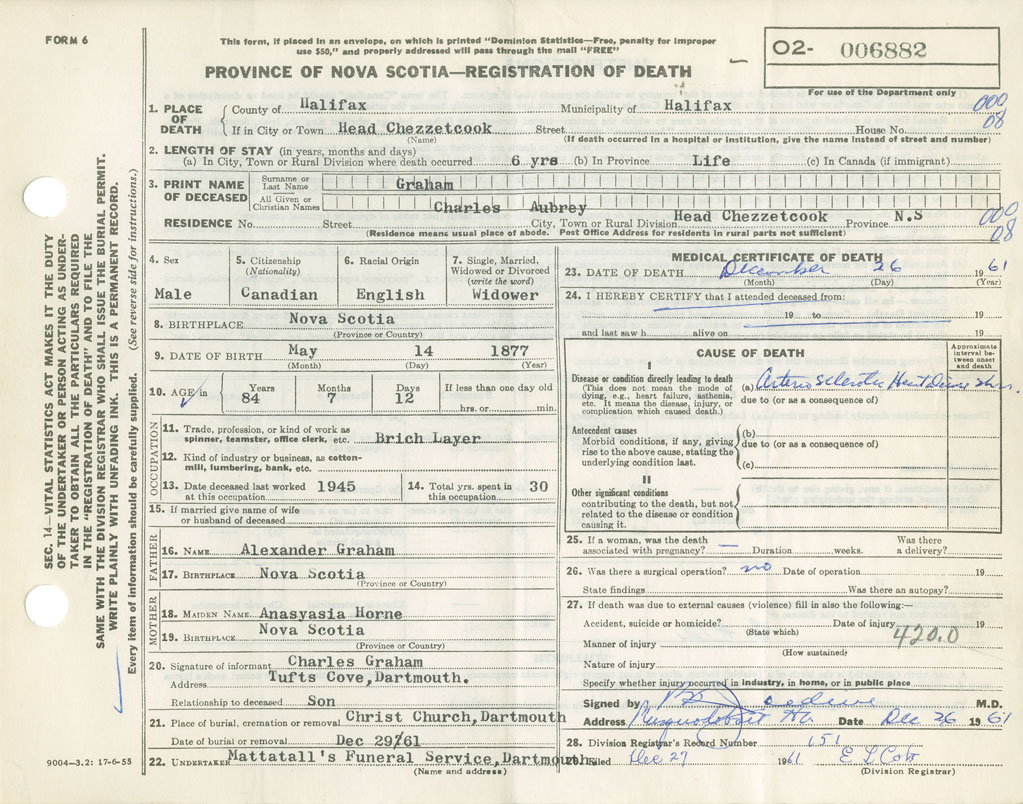 FORM 6
This form, if placed in an envelope, on which is printed "Dominion Statistics—Free, penalty for improper
use $50," and properly addressed will pass through the mail "FREE"
PROVINCE OF NOVA SCOTIA—REGISTRATION OF DEATH
O2- 006882
For use of the Department only
SEC. 14—VITAL STATISTICS ACT MAKES IT THE DUTY
OF THE UNDERTAKER OR PERSON ACTING AS UNDER-
TAKER TO OBTAIN ALL THE PARTICULARS REQUIRED
IN THE "REGISTRATION OF DEATH" AND TO FILE THE
SAME WITH THE DIVISION REGISTRAR WHO SHALL ISSUE THE BURIAL PERMIT.
WRITE PLAINLY WITH UNFADING INK. THIS IS A PERMANENT RECORD.
Every item of information should be carefully supplied. (See reverse side for instructions.)
1. PLACE OF DEATH County of Halifax Municipality of Halifax 000
If in City or Town Head Chezzetcook Street House No. 08
(Name) (If death occurred in a hospital or institution, give the name instead of street and number)
2. LENGTH OF STAY (in years, months and days)
(a) In City, Town or Rural Division where death occurred 6 yrs (b) In Province Life (c) In Canada (if immigrant)
3. PRINT NAME OF DECEASED Surname or Last Name Graham
All Given or Christian Names Charles Aubrey
RESIDENCE No. Street City, Town or Rural Division Head Chezzetcook Province N.S 000
(Residence means usual place of abode. Post Office Address for residents in rural parts not sufficient) 08
4. Sex Male
5. Citizenship (Nationality) Canadian
6. Racial Origin English
7. Single, Married, Widowed or Divorced (write the word) Widower
8. BIRTHPLACE Nova Scotia
(Province or Country)
9. DATE OF BIRTH May 14 1877
(Month) (Day) (Year)
10. AGE in Years 84 Months 7 Days 12 If less than one day old hrs. or min.
OCCUPATION
11. Trade, profession, or kind of work as
spinner, teamster, office clerk, etc. Brich Layer
12. Kind of industry or business, as cotton-
mill, lumbering, bank, etc.
13. Date deceased last worked at this occupation 1945
14. Total yrs. spent in this occupation 30
15. If married give name of wife
or husband of deceased
FATHER
16. NAME Alexander Graham
17. BIRTHPLACE Nova Scotia
(Province or Country)
MOTHER
18. MAIDEN NAME Anasyasia Horne
19. BIRTHPLACE Nova Scotia
(Province or Country)
20. Signature of informant Charles Graham
Address Tufts Cove, Dartmouth.
Relationship to deceased Son
21. Place of burial, cremation or removal Christ Church, Dartmouth
Date of burial or removal Dec 29/61
22. UNDERTAKER Mattatall's Funeral Service, Dartmouth
(Name and address)
9004—3.2: 17-6-55
MEDICAL CERTIFICATE OF DEATH
23. DATE OF DEATH December 26 1961
(Month) (Day) (Year)
24. I HEREBY CERTIFY that I attended deceased from:
19 to 19
and last saw h alive on 19
CAUSE OF DEATH
Approximate interval between onset and death
I
Disease or condition directly leading to death
(This does not mean the mode of
dying, e.g., heart failure, asthenia,
etc. It means the disease, injury, or
complication which caused death.)
(a) Arterio sclerotic Heart
due to (or as a consequence of)
Antecedent causes
Morbid conditions, if any, giving
rise to the above cause, stating the
underlying condition last.
(b)
due to (or as a consequence of)
(c)
II
Other significant conditions
contributing to the death, but not
related to the disease or condition
causing it.
25. If a woman, was the death Was there
associated with pregnancy? — Duration weeks. a delivery?
26. Was there a surgical operation? no Date of operation 19
State findings Was there an autopsy?
27. If death was due to external causes (violence) fill in also the following:—
Accident, suicide or homicide? Date of injury 19
(State which) 420.0
Manner of injury
(How sustained)
Nature of injury
Specify whether injury occurred in industry, in home, or in public place
Signed by M.D.
Address Musquodoboit Date Dec 26 1961
28. Division Registrar's Record Number 151
29. Filed Dec 27 1961
(Division Registrar)